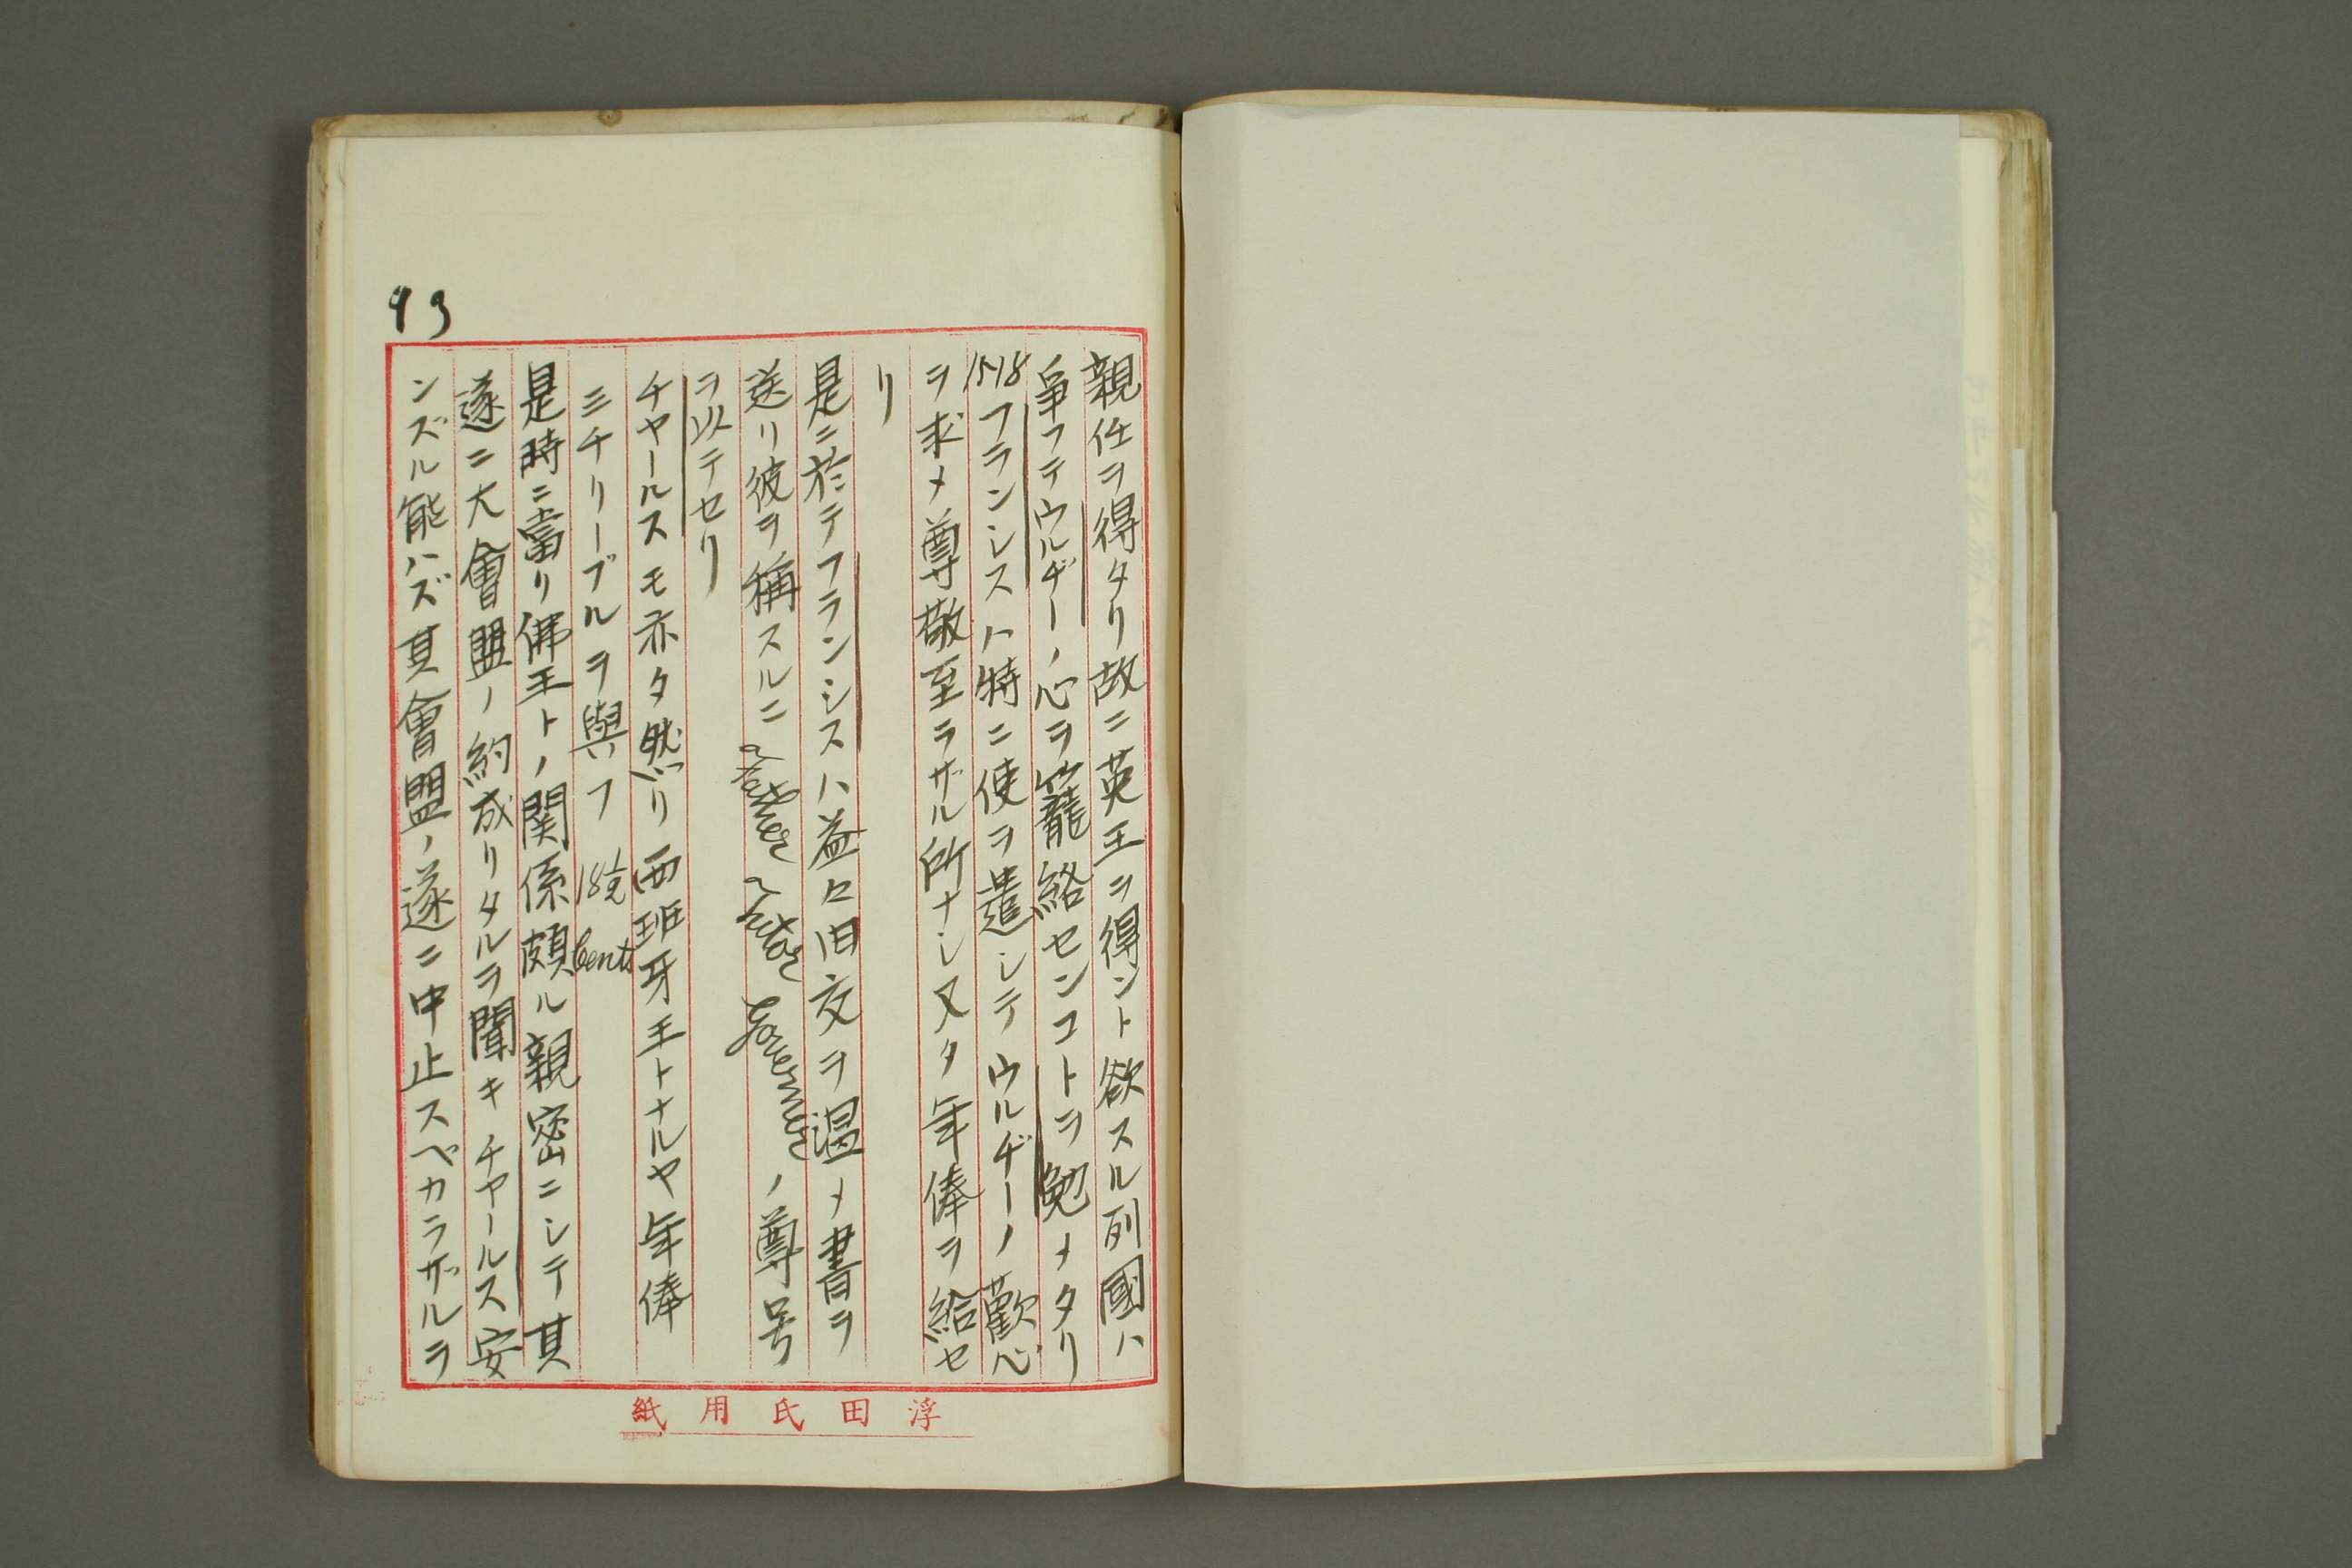 93
親任ヲ得タリ故ニ英王ヲ得ント欲スル列國ハ
爭フテウルヂーノ心ヲ籠絡センコトヲ勉メタリ
1518フランシスハ特ニ使ヲ遣シテウルヂーノ歡心
ヲ求メ尊敬至ラザル所ナシ又タ年俸ヲ給セ
リ
是ニ於テフランシスハ益々旧交ヲ温メ書ヲ
送リ彼ヲ稱スルニ a father a tutor governer ノ尊号
ヲ以テセリ
チヤールスモ亦タ然リ西班牙王トナルヤ年俸
三千リーブルヲ與フ 18½ Cents
是時ニ當リ佛王トノ関係頗ル親密ニシテ其
遂ニ大會盟ノ約成リタルヲ聞キチヤールス安
ンズル能ハズ其會盟ノ遂ニ中止スベカラザルヲ
浮田氏用紙